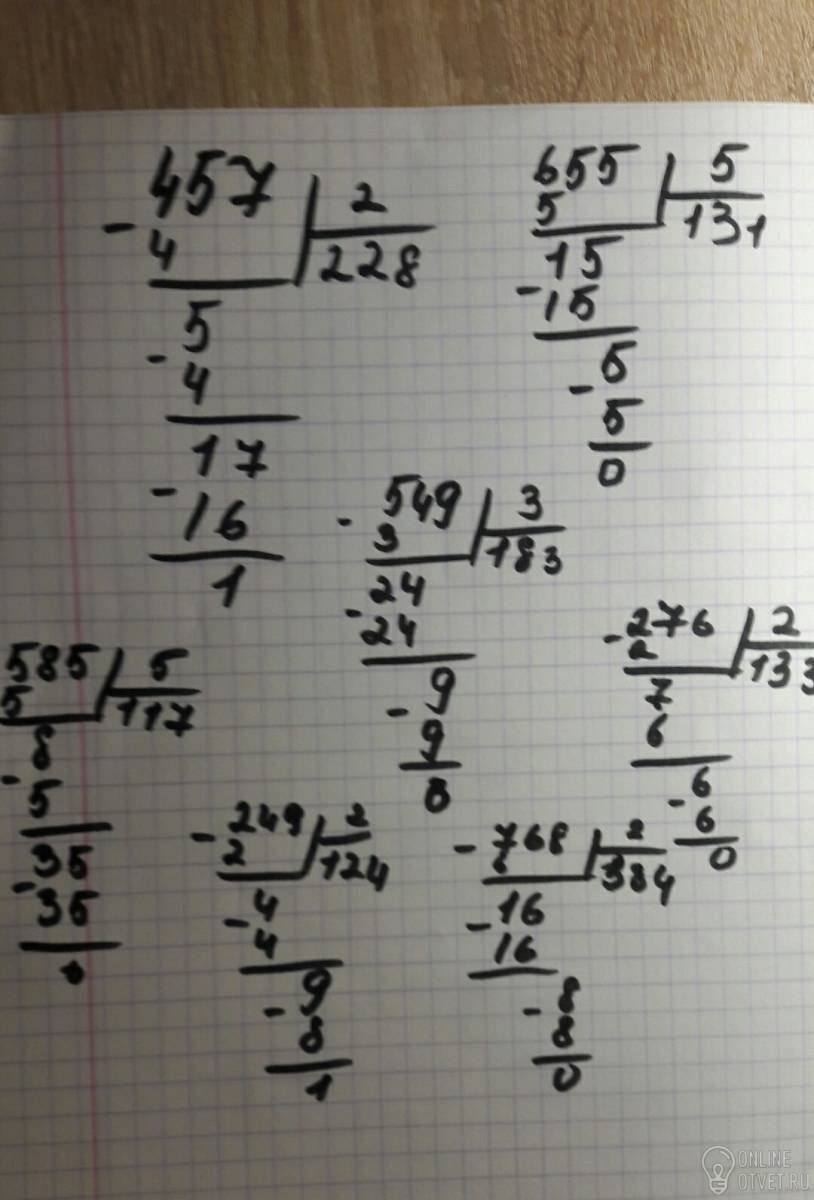 457 | 2
- 4 228
5
- 4
17
- 16
1
655 | 5
5 131
15
- 15
5
- 5
0
- 549 | 3
3 183
24
- 24
9
- 9
0
- 276 | 2
2 133
7
6
6
- 6
0
585 | 5
5 117
8
- 5
35
- 35
0
- 249 | 2
2 124
4
- 4
9
- 8
1
- 768 | 2
6 384
16
- 16
8
- 8
0
ONLINE
OTVET.RU